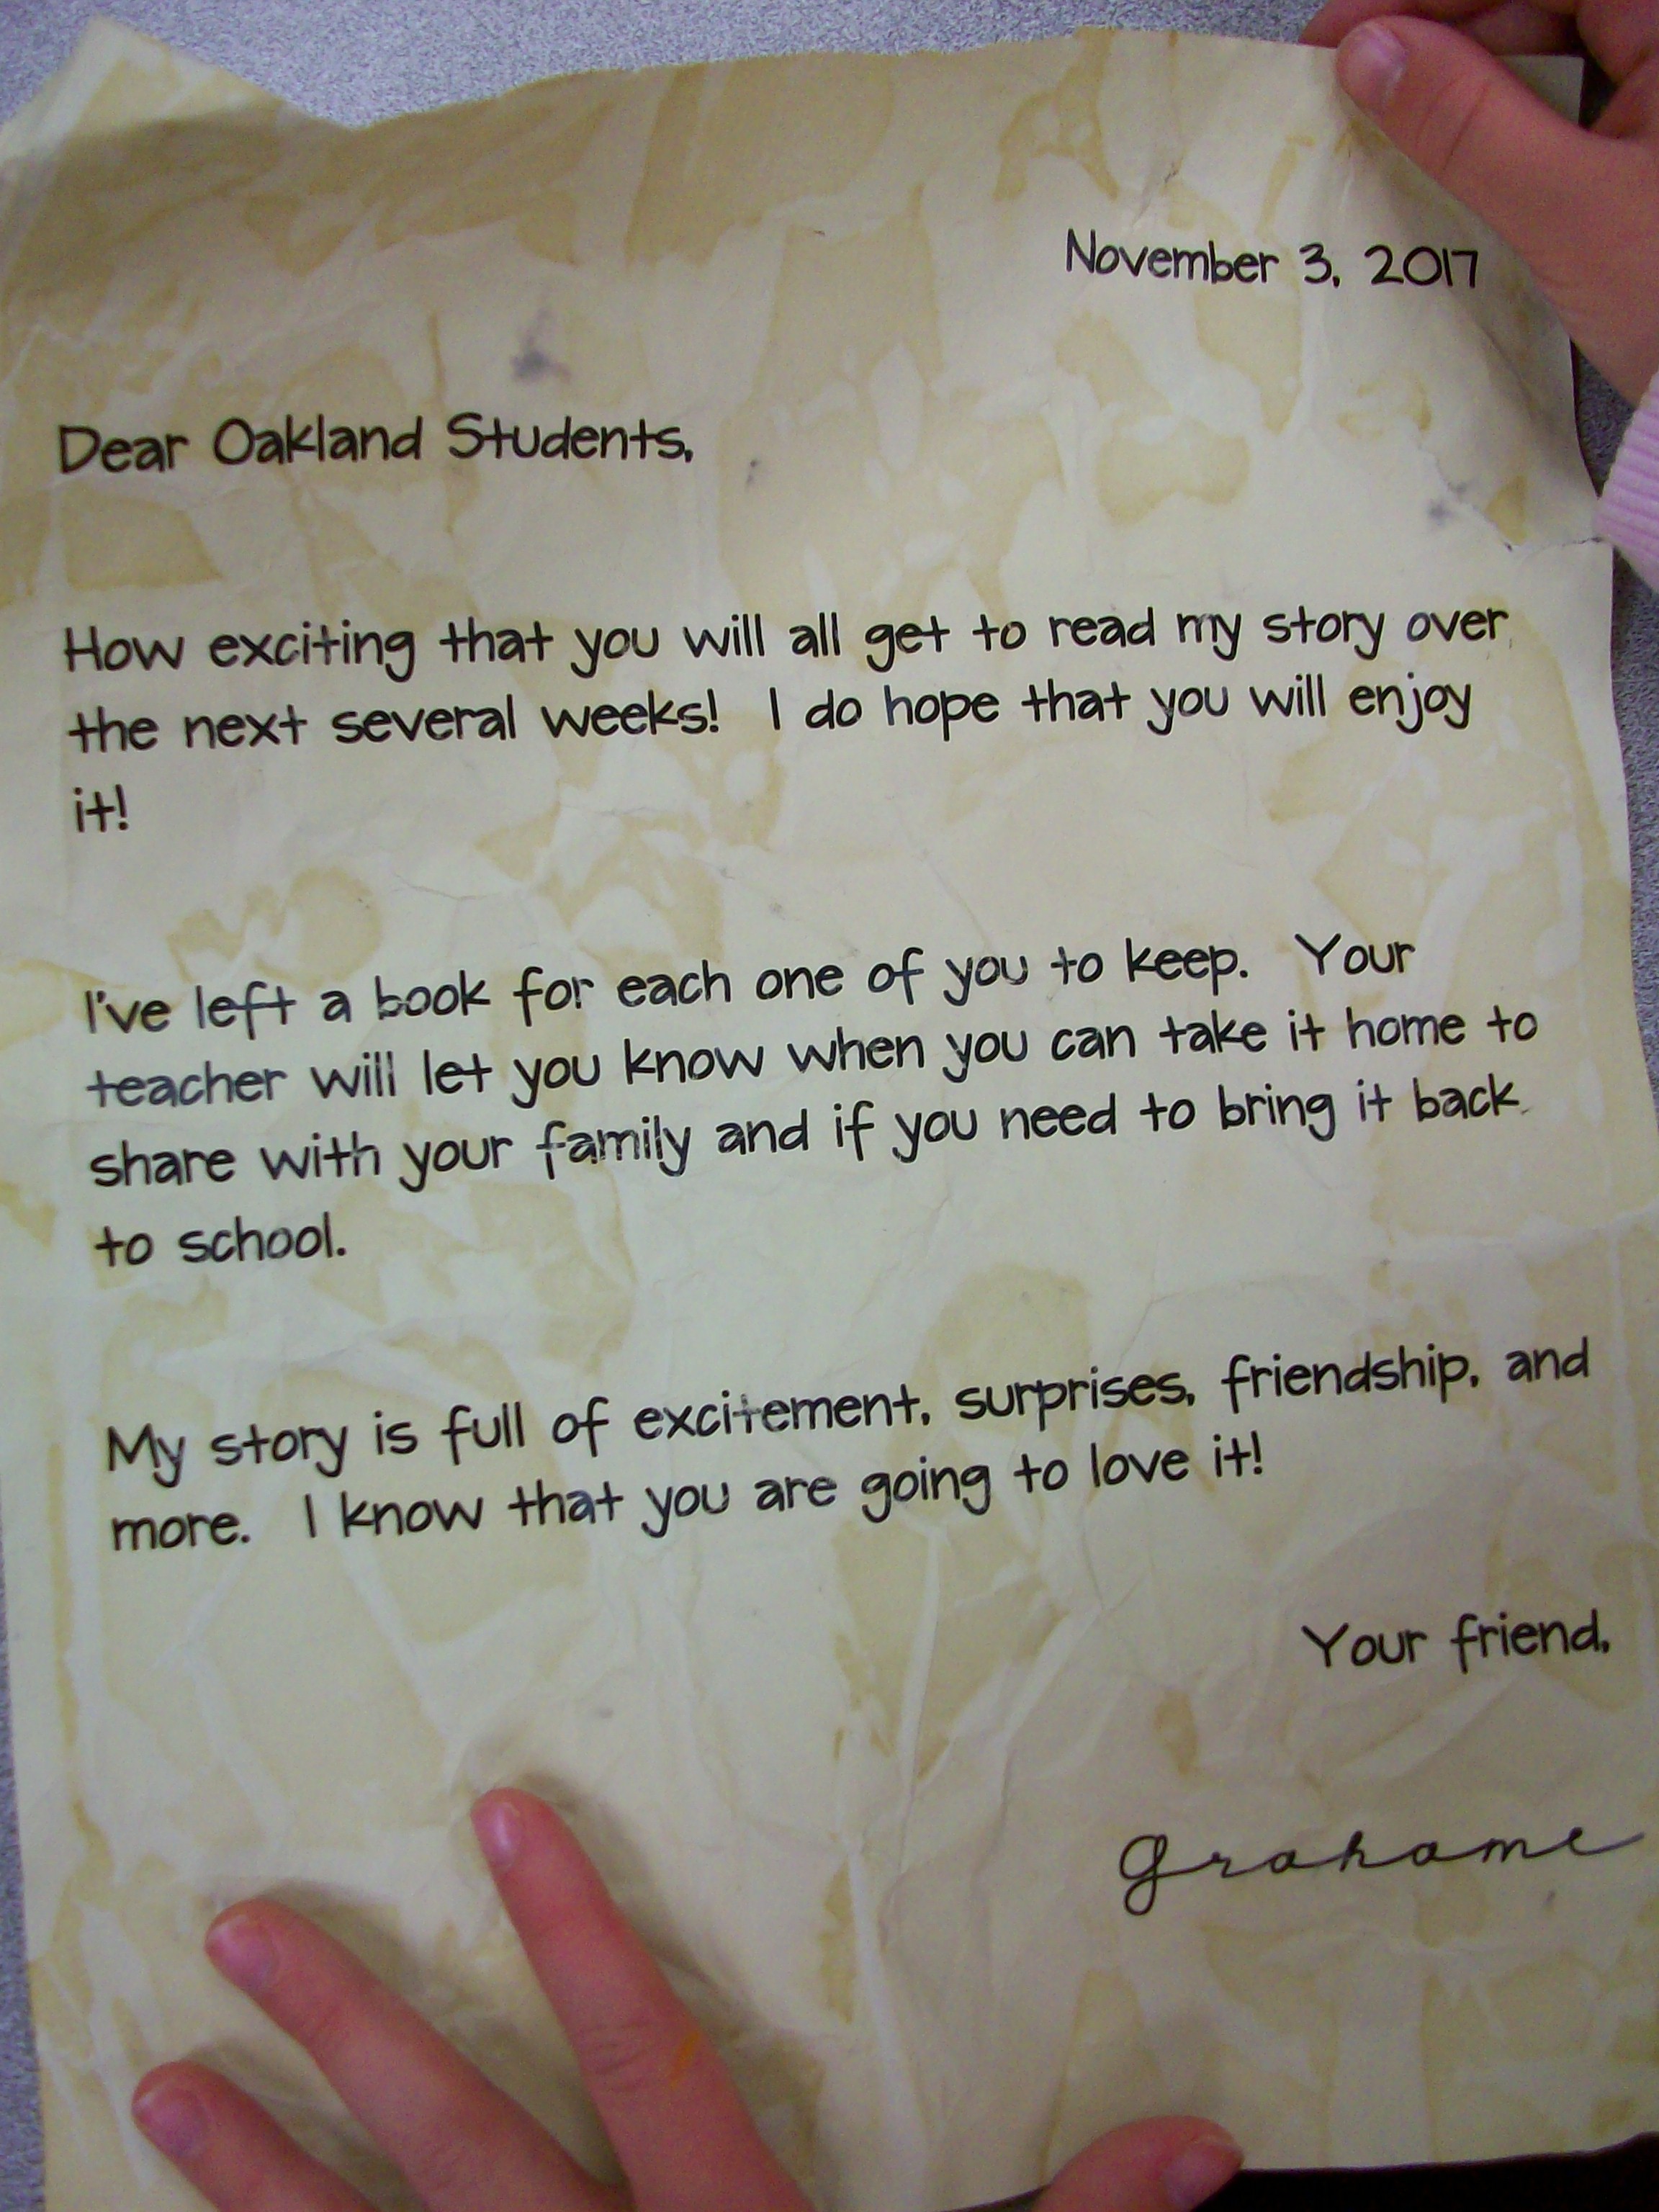 November 3, 2017
Dear Oakland Students,
How exciting that you will all get to read my story over
the next several weeks! I do hope that you will enjoy
it!
I've left a book for each one of you to keep. Your
teacher will let you know when you can take it home to
share with your family and if you need to bring it back
to school.
My story is full of excitement, surprises, friendship, and
more. I know that you are going to love it!
Your friend,
Grahame